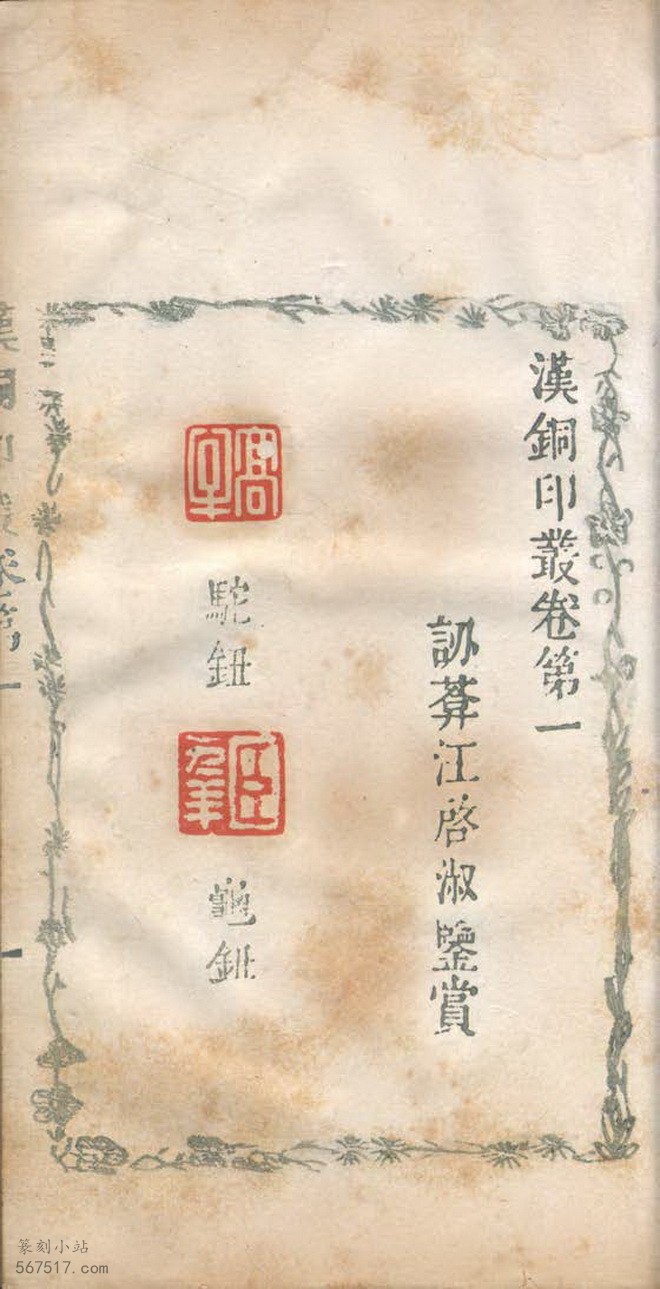 漢銅印叢卷第一
訒葊汪啓淑鑒賞
駝鈕
龜鈕
漢銅印叢卷第一
篆刻小站
567517.com